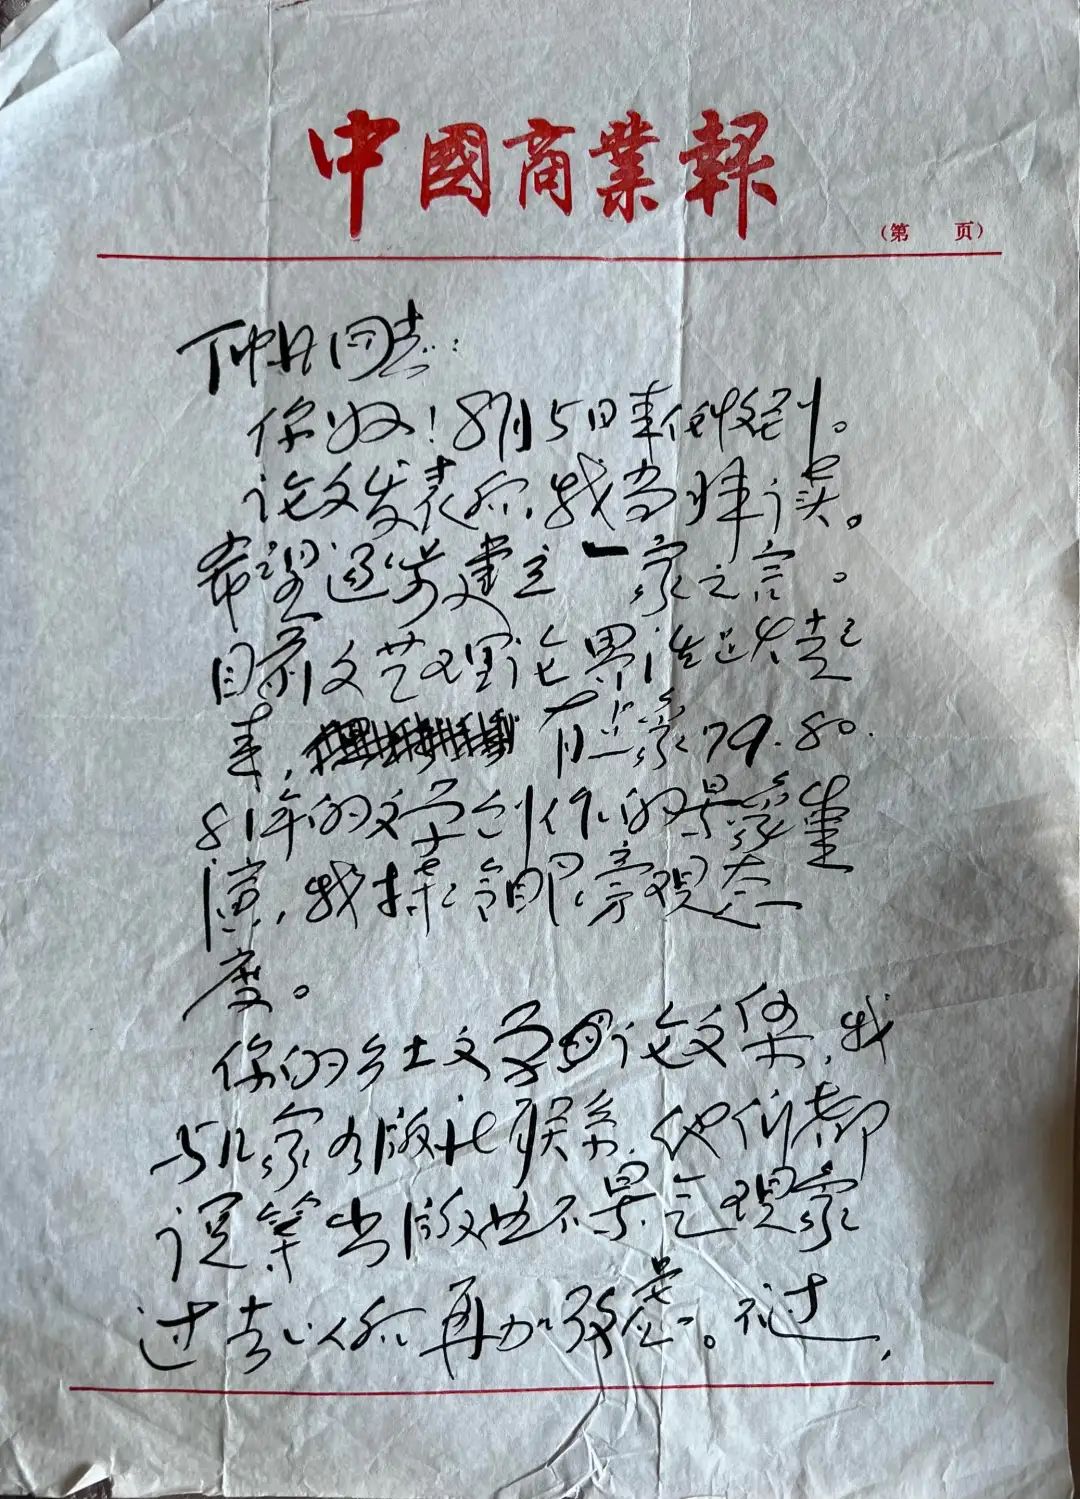 中國商業報
（第　页）
丁帆同志：
你好！8月5日来信收到。
论文发表后，我当拜读。
希望逐步建立一家之言。
目前文艺理论界活跃起
来，有点象79.80.
81年的文学创作的景象重
演，我持冷眼旁观态
度。
你的乡土文学论文集，我
与几家出版社联系，他们都
说等出版业不景气现象
过去以后再加考虑。不过，